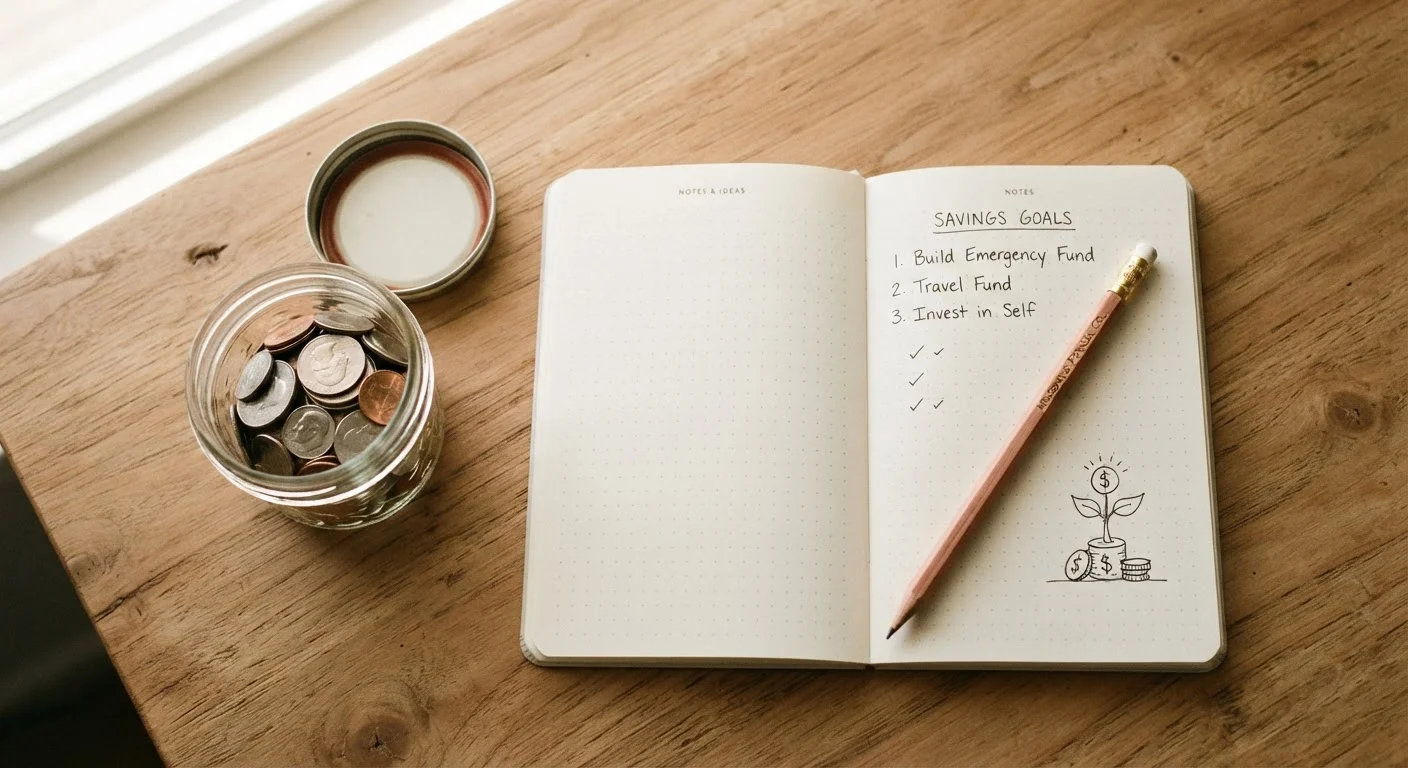 NOTES & IDEAS
NOTES
SAVINGS GOALS
1. Build Emergency Fund
2. Travel Fund
3. Invest in Self
$
$ $